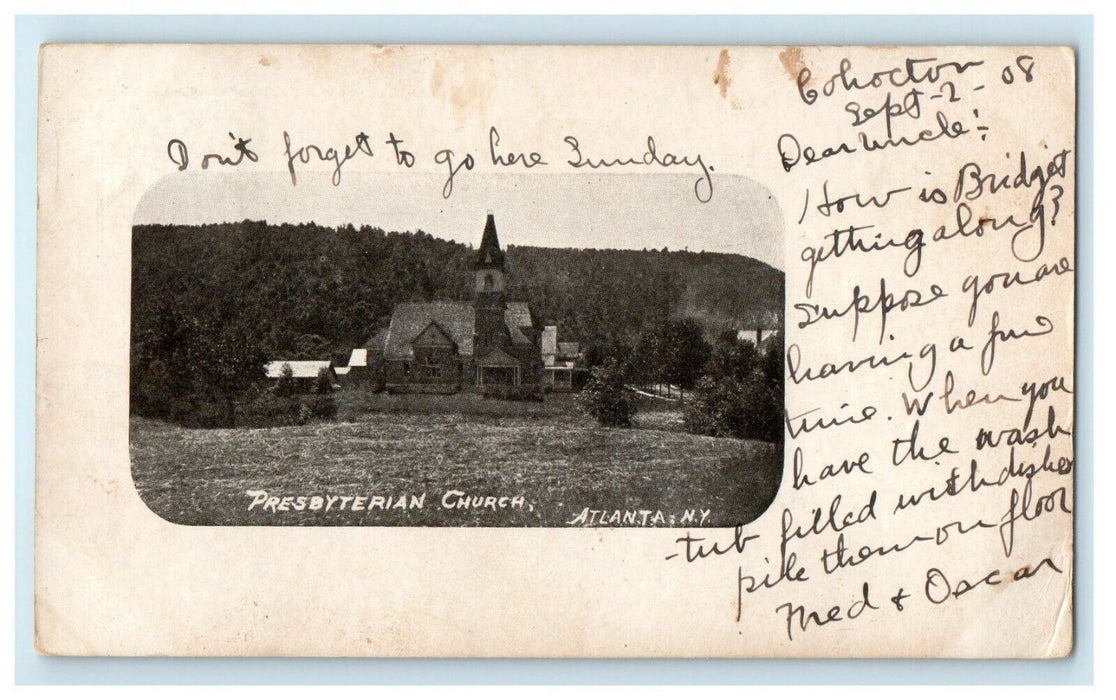 Cohocton
Sept-2-08
Dear Uncle:
Don't forget to go here Sunday.
How is Bridget
getting along?
Suppose you are
having a fine
time. When you
have the wash
-tub filled with dishes
pile them on floor
Fred & Oscar
PRESBYTERIAN CHURCH,
ATLANTA, N.Y.